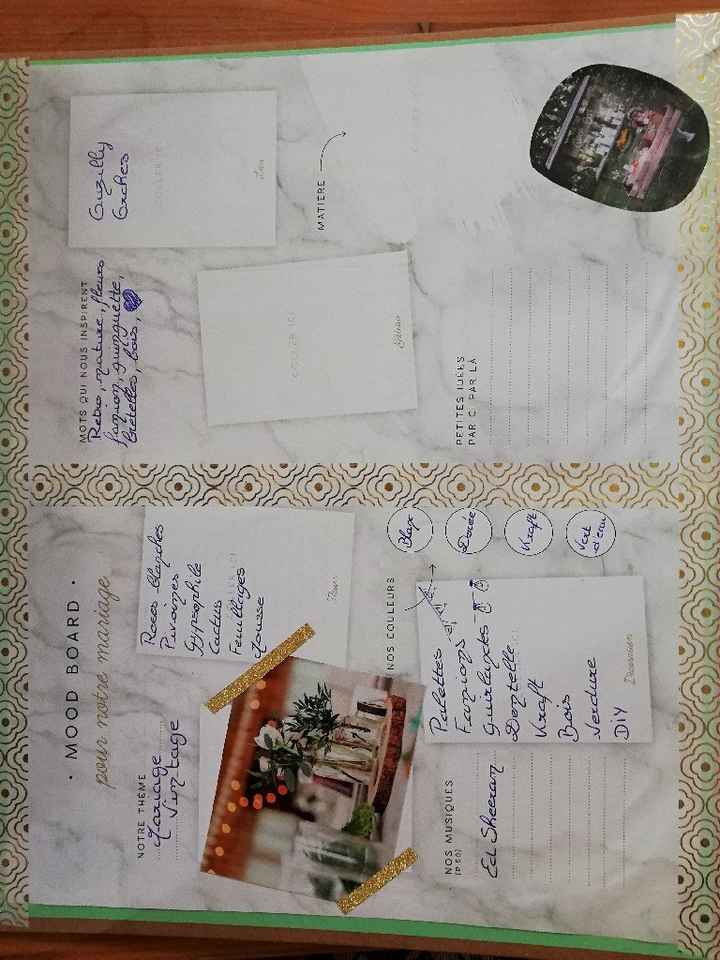 • MOOD BOARD •
pour notre mariage
NOTRE THÈME
Mariage
Vintage
Roses blanches
Pivoines
Gypsophile
Cactus
Feuillages
Mousse
Fleurs
NOS COULEURS
Dorée
Kraft
Vert
d'eau
NOS MUSIQUES
Ed Sheeran
Palettes
Fanions
Guirlandes
Dentelle
Kraft
Bois
Verdure
DIY
Décoration
MOTS QUI NOUS INSPIRENT
Retro, nature, fleurs
fanion, guinguette,
bretelles, bois,
COLLER ICI
Gâteau
COLLER ICI
Lieu
MATIÈRE
PETITES IDÉES
PAR CI PAR LÀ